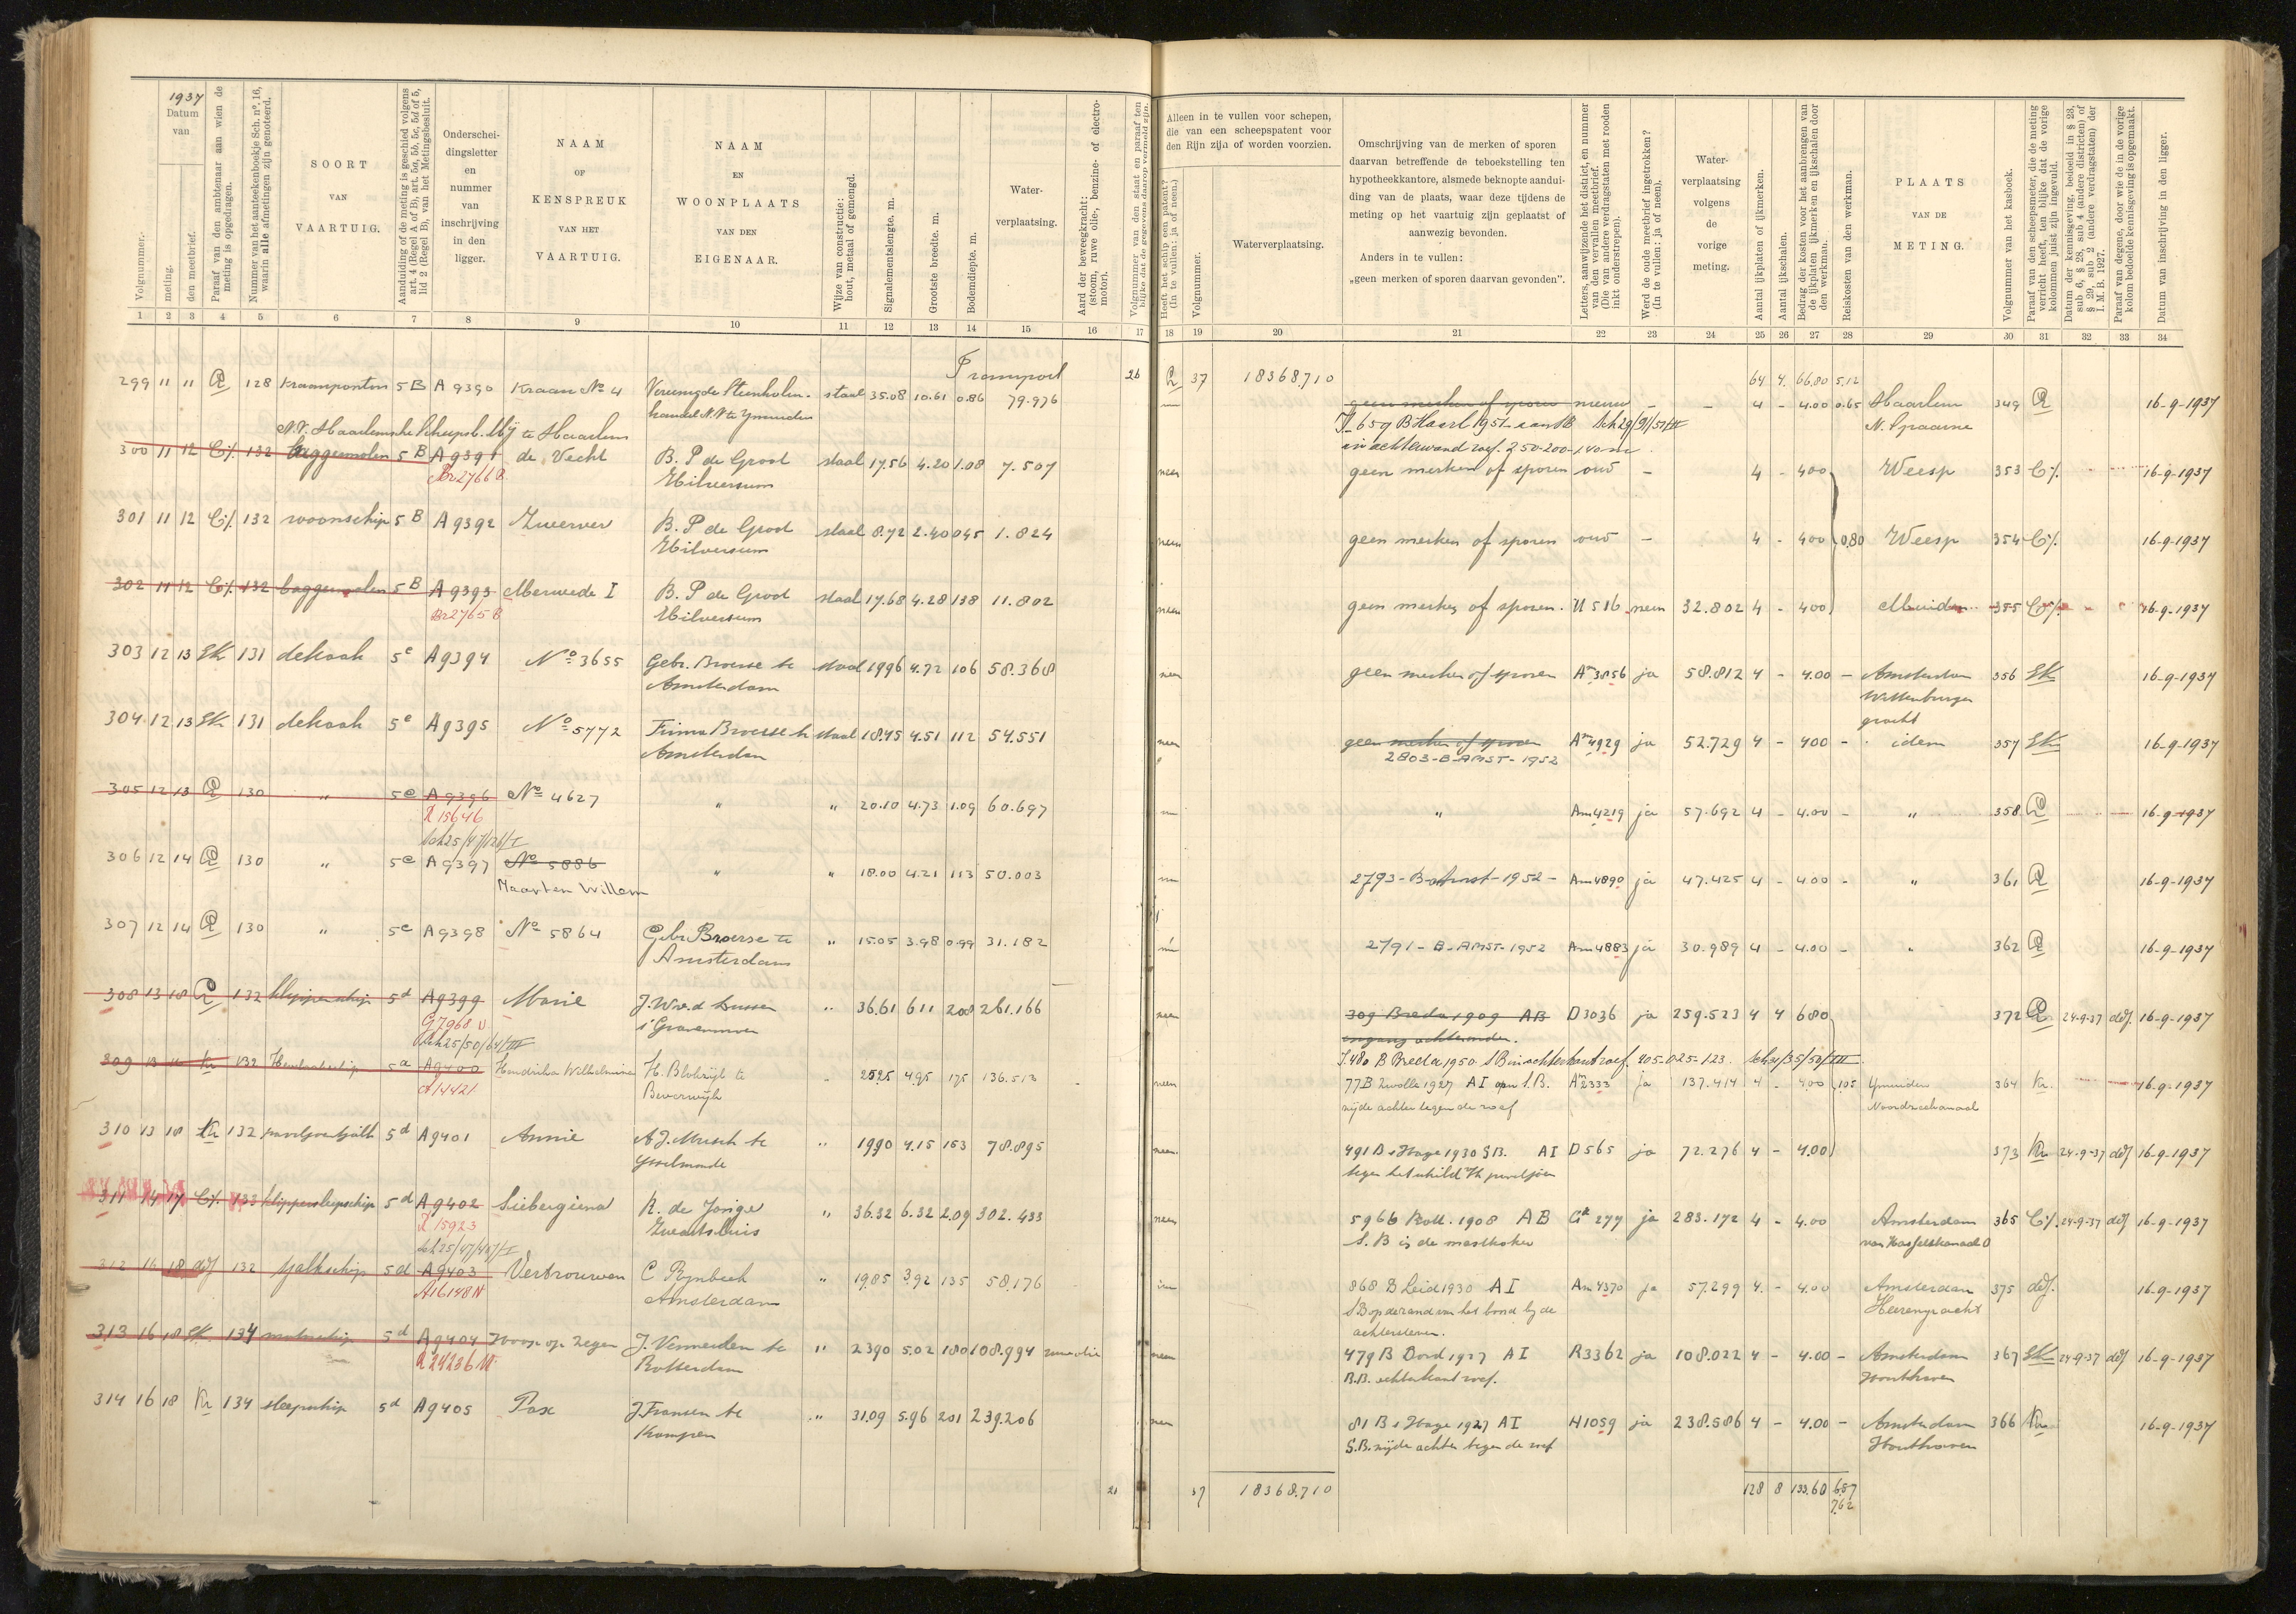 1937
Datum
van
meting.
den meetbrief.
Volgnummer.
Paraaf van den ambtenaar aan wien de
meting is opgedragen.
Nummer van het aanteekenboekje Sch. nº. 16,
waarin alle afmetingen zijn genoteerd.
SOORT
VAN
VAARTUIG.
Aanduiding of de meting is geschied volgens
art. 4 (Regel A of B), art. 5a, 5b, 5c, 5d of 5,
lid 2 (Regel B), van het Metingsbesluit.
Onderschei-
dingsletter
en
nummer
van
inschrijving
in den
ligger.
NAAM
OF
KENSPREUK
VAN HET
VAARTUIG.
NAAM
EN
WOONPLAATS
VAN DEN
EIGENAAR.
Wijze van constructie:
hout, metaal of gemengd.
Signalementslengte. m.
Grootste breedte. m.
Bodemdiepte. m.
Water-
verplaatsing.
Aard der beweegkracht:
(stoom, ruwe olie-, benzine- of electro-
motor).
Volgnummer van den staat en paraaf ten
blijke dat de gegevens daarop vermeld zijn.
Alleen in te vullen voor schepen,
die van een scheepspatent voor
den Rijn zijn of worden voorzien.
Heeft het schip een patent?
(In te vullen: ja of neen.)
Volgnummer.
Waterverplaatsing.
Omschrijving van de merken of sporen
daarvan betreffende de teboekstelling ten
hypotheekkantore, alsmede beknopte aandui-
ding van de plaats, waar deze tijdens de
meting op het vaartuig zijn geplaatst of
aanwezig bevonden.
Anders in te vullen:
„geen merken of sporen daarvan gevonden”.
Letters, aanwijzende het district, en nummer
van den vervallen meetbrief.
(Die van andere verdragstaten met rooden
inkt onderstrepen).
Werd de oude meetbrief ingetrokken?
(In te vullen: ja of neen).
Water-
verplaatsing
volgens
de
vorige
meting.
Aantal ijkplaten of ijkmerken.
Aantal ijkschalen.
Bedrag der kosten voor het aanbrengen van
de ijkplaten ijkmerken en ijkschalen door
den werkman.
Reiskosten van den werkman.
PLAATS
VAN DE
METING.
Volgnummer van het kasboek.
Paraaf van den scheepsmeter, die de meting
verricht heeft, ten blijke dat de vorige
kolommen juist zijn ingevuld.
Datum der kennisgeving, bedoeld in § 23,
sub 6, § 28, sub 4 (andere districten) of
§ 29, sub 2 (andere verdragstaten) der
I. M. B. 1927.
Paraaf van degene, door wie de in de vorige
kolom bedoelde kennisgeving is opgemaakt.
Datum van inschrijving in den ligger.
1 2 3 4 5 6 7 8 9 10 11 12 13 14 15 16 17 18 19 20 21 22 23 24 25 26 27 28 29 30 31 32 33 34
Transport 26 37 18368.710 64 4 66.80 5.12
299 11 11 128 Kraanponton 5 B A 9390 Kraan No 4 Vereenigde Steenkolen- staal 35.08 10.61 0.86 79.976 geen merken of sporen nieuw - - 4 - 4.00 0.65 Haarlem 349 16-9-1937
handel N.V. te Ymuiden N. Spaarne
N.V. Haarlemsche Scheepsb. Mij te Haarlem
659 B Haarl 1951 Sch 29/91/51/II
in achterwand roef. 2.50-200-1.40 m
300 11 12 132 baggermolen 5 B A 9391 de Vecht B. P de Groot staal 17.56 4.20 1.08 7.507 neen geen merken of sporen oud - 4 - 400 Weesp 353 16-9-1937
Br 2766 B Hilversum
301 11 12 132 woonschip 5 B A 9392 Zwerver B. P de Groot staal 8.72 2.40 045 1.824 neen geen merken of sporen oud - 4 - 400 0.80 Weesp 354 16-9-1937
Hilversum
302 11 12 132 baggermolen 5 B A 9393 Merwede I B. P de Groot staal 17.68 4.28 138 11.802 neen geen merken of sporen. U 516 neen 32.802 4 - 400 Muiden 355 16-9-1937
Br 2765 B Hilversum
303 12 13 SK 131 dekbak 5 e A 9394 No 3655 Gebr. Broerse te staal 19.96 4.72 106 58.368 neen geen merken of sporen Am 3856 ja 58.812 4 - 4.00 - Amsterdam 356 SK 16-9-1937
Amsterdam Wittenburger
gracht
304 12 13 SK 131 dekbak 5 e A 9395 No 5772 Firma Broerse te staal 18.45 4.51 112 54.551 neen geen merken of sporen Am 4929 ja 52.729 4 - 400 - idem 357 SK 16-9-1937
Amsterdam 2803-B-AMST-1952
305 12 13 130 „ 5 e A 9396 No 4627 „ „ 20.10 4.73 1.09 60.697 „ Am 4219 ja 57.692 4 - 4.00 - „ 358 16-9-1937
R 15646
Sch 25/47/126/I
306 12 14 130 „ 5 e A 9397 No 5886 „ „ 18.00 4.21 113 50.003 2793-B-Amst-1952 - Am 4890 ja 47.425 4 - 4.00 - „ 361 16-9-1937
Maarten Willem
307 12 14 130 „ 5 e A 9398 No 5864 Gebr Broerse te „ 15.05 3.98 0.99 31.182 2791-B-AMST-1952 Am 4883 ja 30.989 4 - 4.00 - „ 362 16-9-1937
Amsterdam
308 13 18 132 klipperschip 5 d A 9399 Marie J. W v. d Lussen „ 36.61 6 11 208 261.166 neen 309 Breda 1909 AB D 3036 ja 259.523 4 4 680 372 24-9-37 16-9-1937
G 7968 N 's Gravenmoer ingang achteronder.
Sch 25/50/64/III 480 B Breda 1950 SB in achterkant roef. 405-025-123. Sch 31/35/50/III
309 13 Kr 132 5 a A 9400 Hendrika Wilhelmina H. Blokzijl te 25.25 4.95 175 136.513 neen 77 B Zwolle 1927 AI aan S.B. Am 2333 ja 137.414 4 - 400 1.05 Ymuiden 364 Kr. 16-9-1937
A 14421 Beverwijk zijde achter tegen de roef Noordzeekanaal
310 13 18 Kr 132 paviljoentjalk 5 d A 9401 Annie A. J. Musch te „ 19.90 4.15 153 78.895 neen 491 B s Hage 1930 S.B. AI D 565 ja 72.276 4 - 4.00 373 Kr 24-9-37 16-9-1937
Ysselmonde tegen het schild paviljoen
311 14 17 133 klippersleepschip 5 d A 9402 Siebergiena K. de Jonge „ 36.32 6.32 2.09 302.433 neen 5966 Rott. 1908 AB Gk 277 ja 283.172 4 - 4.00 Amsterdam 365 24-9-37 16-9-1937
R 15923 Zwartsluis S. B in de mastkoker van Hasseltskanaal O
Sch 25/47/48/I
312 16 18 132 tjalkschip 5 d A 9403 Vertrouwen C Rynbeek „ 19.85 3.92 135 58.176 868 B Leid 1930 AI Am 4370 ja 57.299 4 - 4.00 Amsterdam 375 16-9-1937
A 16148 N Amsterdam SB op de rand van het boord bij de Heerengracht
achtersteven.
313 16 18 SK 134 motorschip 5 d A 9404 Hoop op Zegen J. Vermeulen te „ 23.90 5.02 180 108.994 neen 479 B Dord 1927 AI R 3362 ja 108.022 4 - 4.00 - Amsterdam 367 SK 24-9-37 16-9-1937
R 24236 N Rotterdam B.B. achterkant roef. Houthaven
314 16 18 Kr 134 sleepschip 5 d A 9405 Pax J. Fransen te „ 31.09 5.96 201 239.206 neen 81 B s Hage 1927 AI H 1059 ja 238.586 4 - 4.00 - Amsterdam 366 Kr. 16-9-1937
Kampen S.B. zijde achter tegen de roef Houthaven
26 37 18368.710 128 8 133.60 6.87
7.62